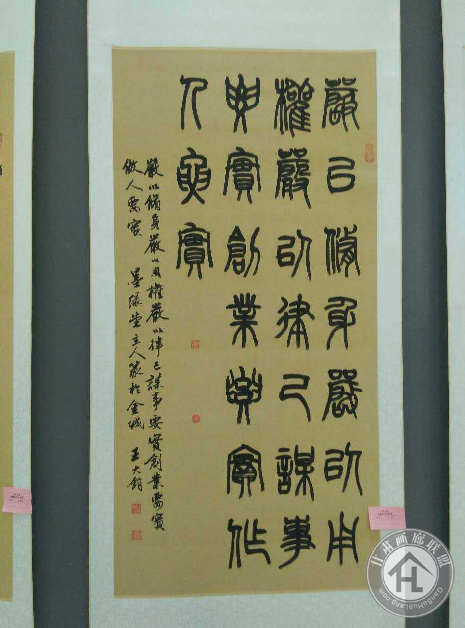 嚴以脩身嚴以用
權嚴以律己謀事
要實創業要實作
人要實
嚴以脩身嚴以用權嚴以律己謀事要實創業要實
做人要實 墨緣堂主人篆於金城 王大鈞
甘肃画廊联盟
GanSuHuaLang.com